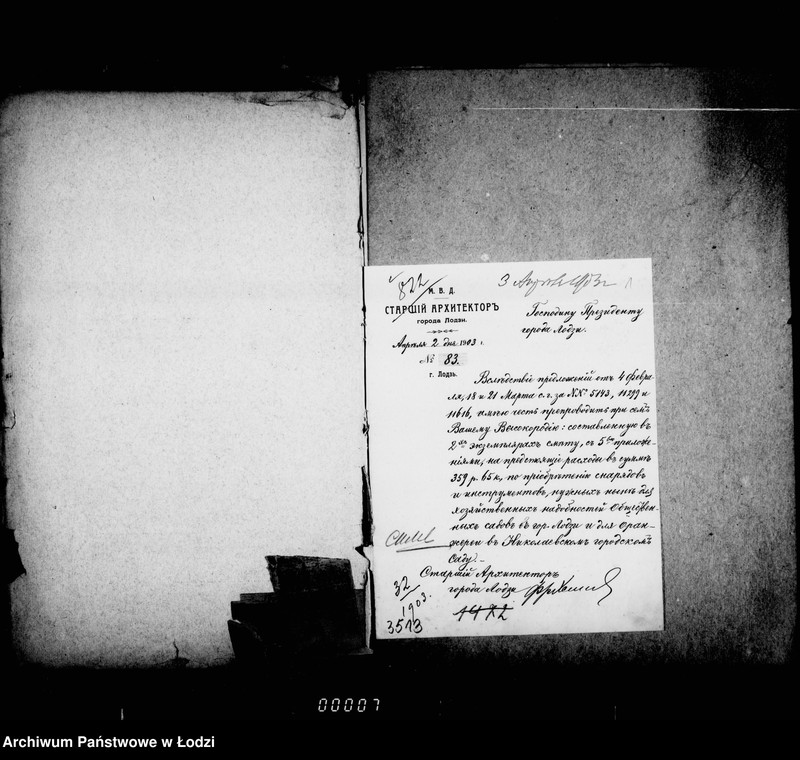 822
3 Апреля 1903 г. 1
М. В. Д.
СТАРШІЙ АРХИТЕКТОРЪ
города Лодзи.
Апрѣля 2 дня 1903 г.
№ 83.
г. Лодзь.
Господину Президенту
города Лодзи.
Вслѣдствіе предложеній отъ 4 Февра-
ля, 18 и 21 Марта с. г. за №№ 5143, 11299 и
11616, имѣю честь препроводить при семъ
Вашему Высокородію: составленную въ
2хъ экземплярахъ смѣту, съ 5ью приложе-
ніями, на предстоящіе расходы въ суммѣ
359 р. 65 к., по пріобрѣтенію снарядовъ
и инструментовъ, нужныхъ нынѣ для
хозяйственныхъ надобностей Обществен-
ныхъ садовъ въ гор. Лодзи и для Оран-
жереи въ Николаевскомъ городскомъ
саду.
Старшій Архитекторъ
города Лодзи
32
1903.
3513
1472
00007
Archiwum Państwowe w Łodzi